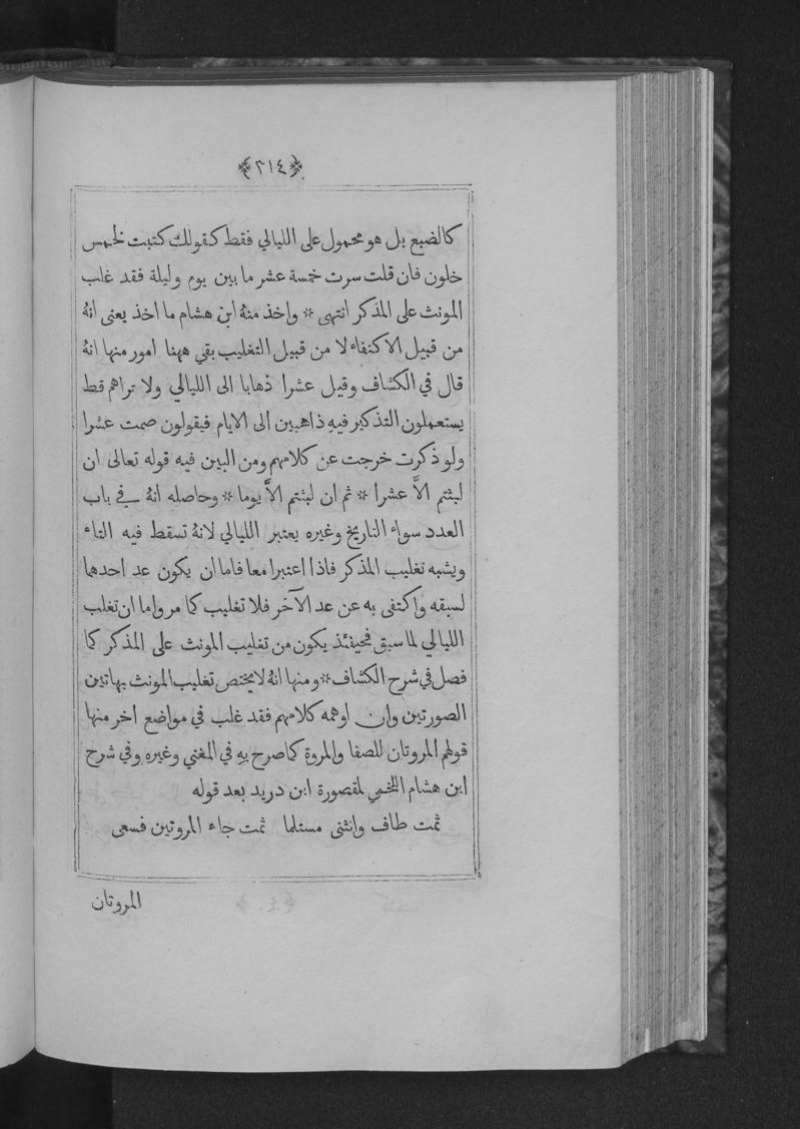 ﴿٢١٤﴾
كالضبع بل هو محمول على الليالي فقط كقولك كتبت لخمس
خلون فان قلت سرت خمسة عشر ما بين يوم وليلة فقد غلب
المونث على المذكر انتهى * واخذ منهُ ابن هشام ما اخذ يعنى انهُ
من قبيل الاكتفاء لا من قبيل التغليب بقي ههنا امور منها انهُ
قال في الكشاف وقيل عشرا ذهابا الى الليالي ولا تراهم قط
يستعملون التذكير فيهِ ذاهبين الى الايام فيقولون صمت عشرا
ولو ذكرت خرجت عن كلامهم ومن البين فيه قوله تعالى ان
لبثتم الاَّ عشرا * ثم ان لبثتم الاَّ يوما * وحاصله انهُ في باب
العدد سواء التاريخ وغيره يعتبر الليالي لانهُ تسقط فيه التاء
ويشبه تغليب المذكر فاذا اعتبرا معا فاما ان يكون عد احدها
لسبقه واكتفى به عن عد الآخر فلا تغليب كما مر واما ان تغلب
الليالي لما سبق فحينئذ يكون من تغليب المونث على المذكر كما
فصل في شرح الكشاف * ومنها انهُ لا يختص تغليب المونث بهاتين
الصورتين وان اوهمه كلامهم فقد غلب في مواضع اخر منها
قولهم المروتان للصفا والمروة كما صرح بهِ في المغني وغيره وفي شرح
ابن هشام اللخمي لمقصورة ابن دريد بعد قوله
ثمت طاف وانثنى مستلما ثمت جاء المروتين فسعى
المروتان